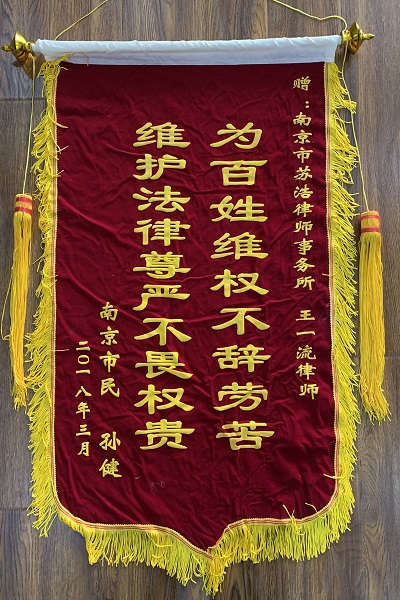 赠：南京市苏浩律师事务所 王一流律师
为百姓维权不辞劳苦
维护法律尊严不畏权贵
南京市民 孙健
二〇一八年三月